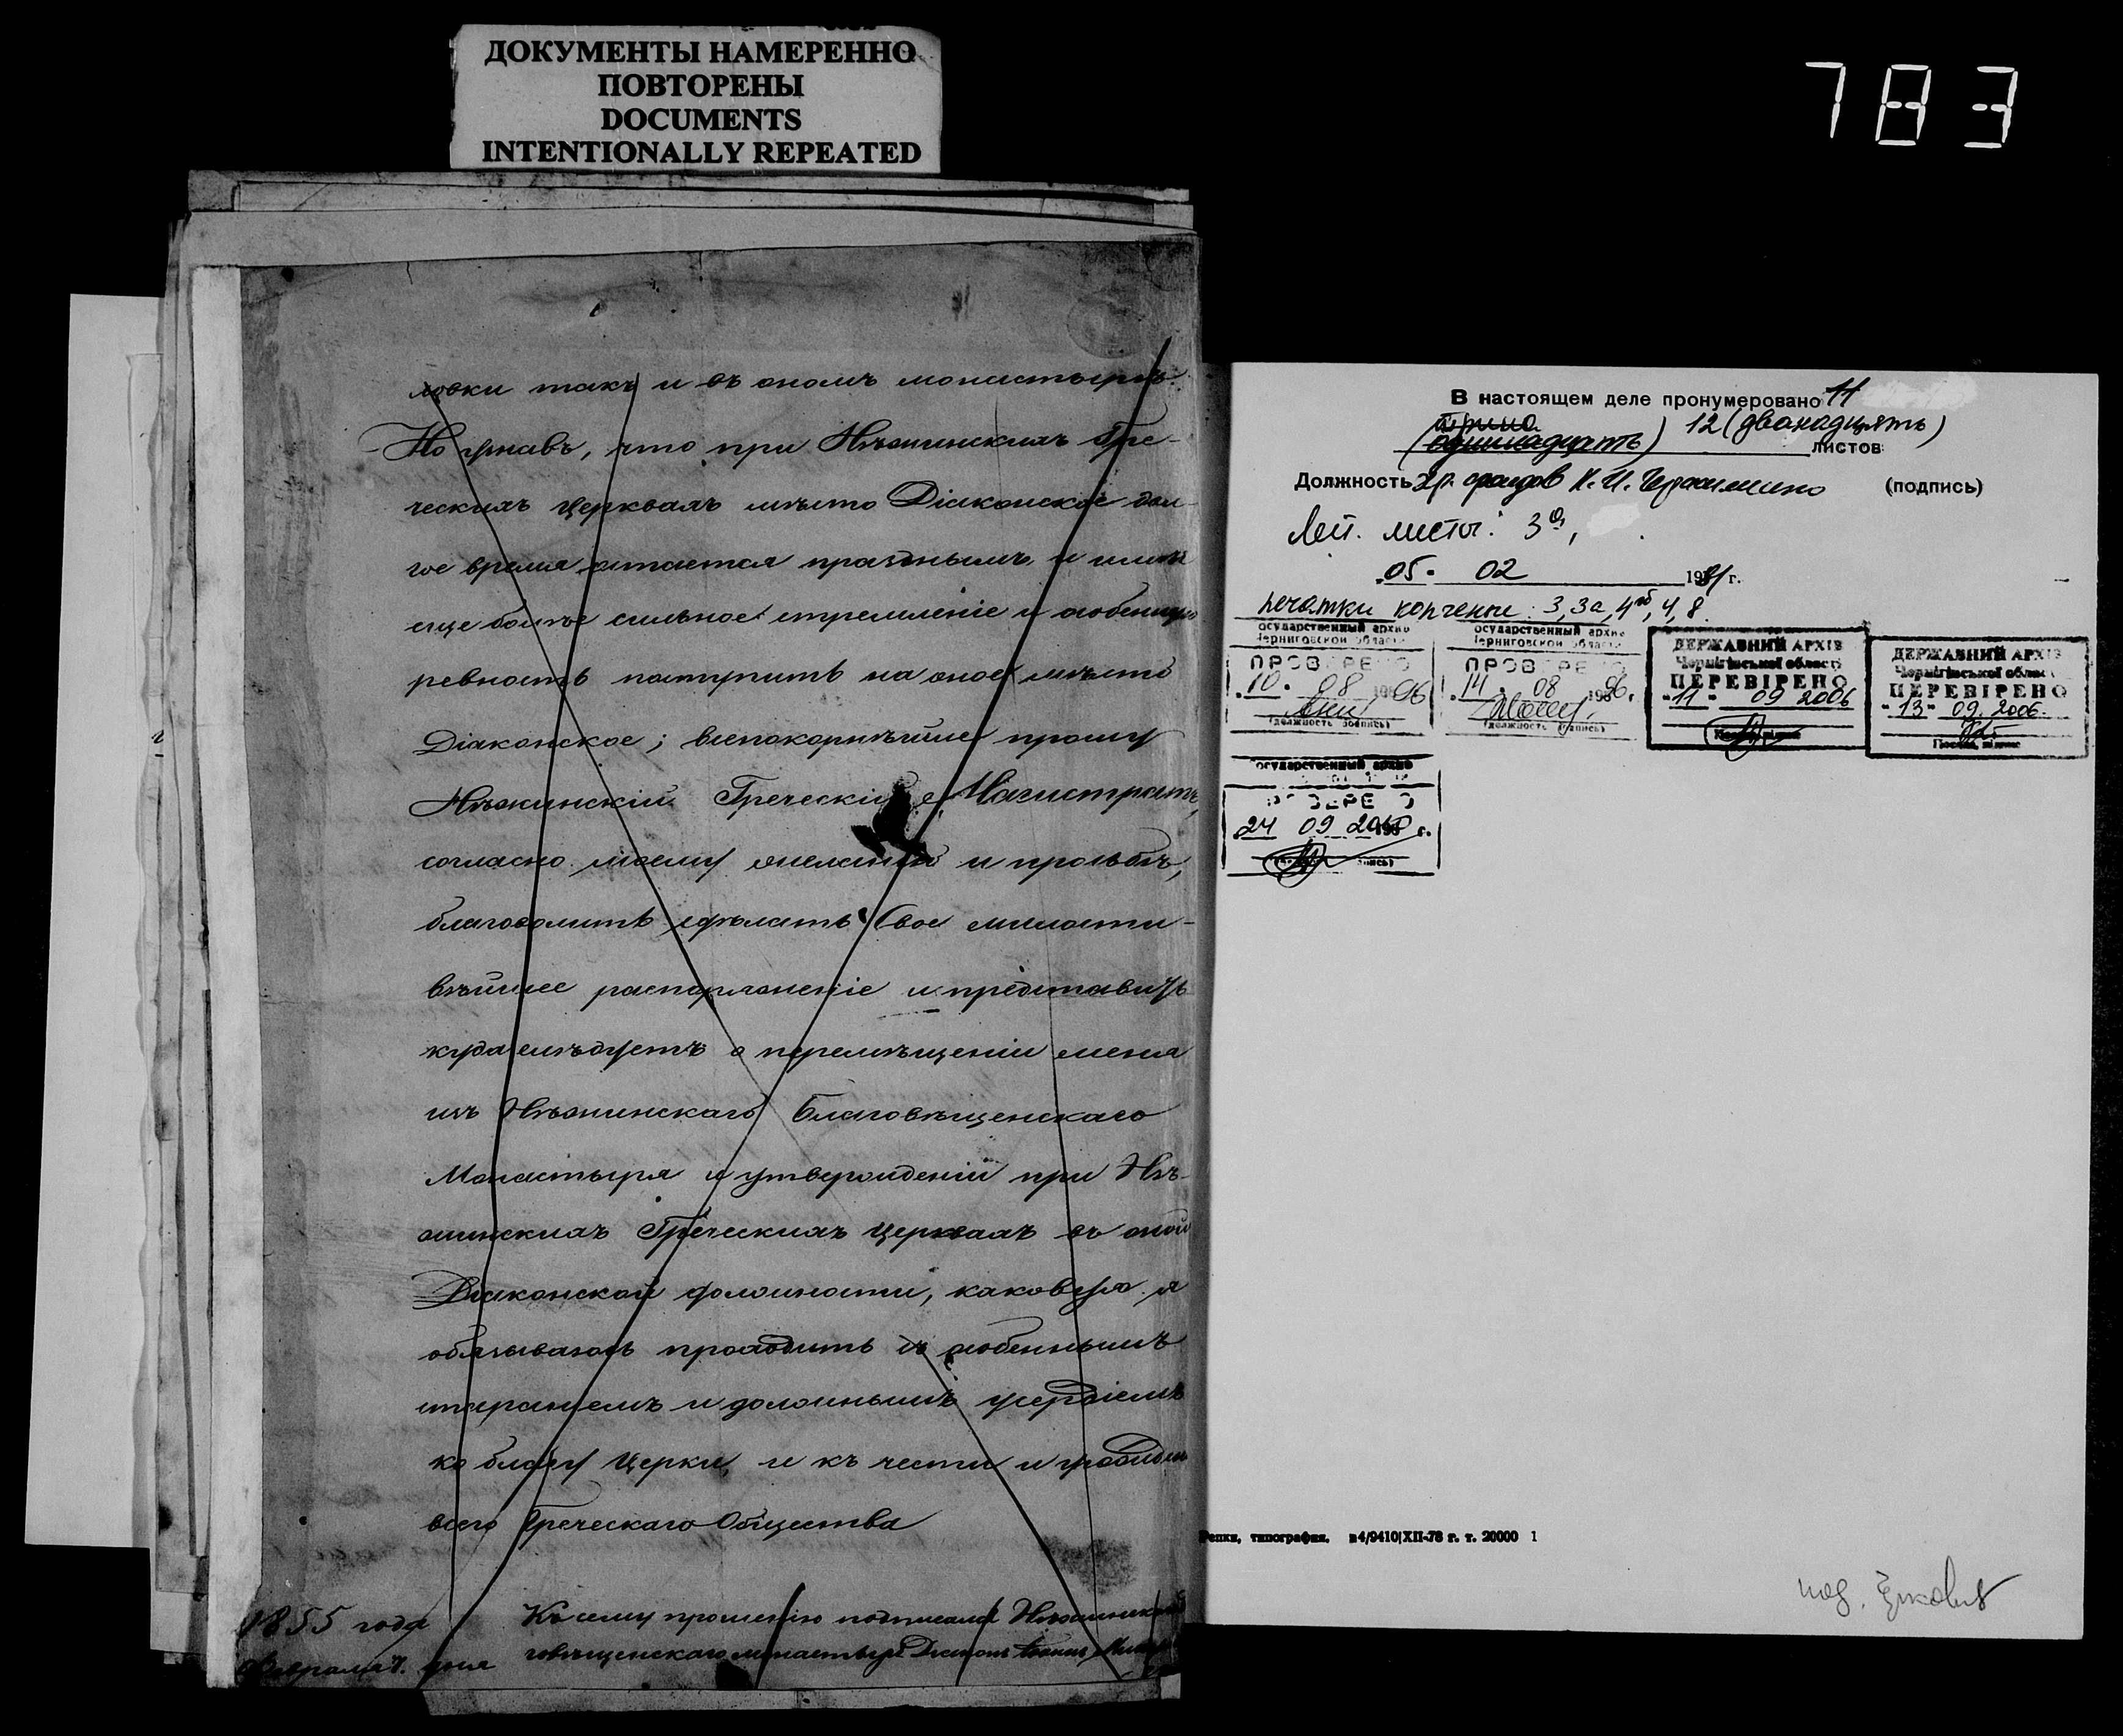 ДОКУМЕНТЫ НАМЕРЕННО
ПОВТОРЕНЫ
DOCUMENTS
INTENTIONALLY REPEATED
783
ловки такъ и въ ономъ монастырѣ.
Но узнавъ, что при Нѣжинскихъ Гре-
ческихъ церквахъ мѣсто Діаконское дол-
гое время остается празднымъ, и имѣя
еще болѣе сильное стремленіе и особенную
ревность поступить на оное мѣсто
Діаконское; всепокорнѣйше прошу
Нѣжинскій Греческій Магистратъ,
согласно моему желанію и прозьбѣ,
благоволить сдѣлать Свое милости-
вѣйшее распоряженіе и представить
куда слѣдуетъ о перемѣщеніи меня
изъ Нѣжинскаго Благовѣщенскаго
Монастыря и утвержденіи при Нѣ-
жинскихъ Греческихъ церквахъ въ оной
Діаконской должности, каковую я
обязываюсь проходить съ особеннымъ
стараніемъ и должнымъ усердіемъ
ко благу Церкви, и къ чести и
всего Греческаго Общества
1855 года
Февраля 7. дня
Къ сему прошенію подписался Нѣжинскаго
говѣщенскаго монастыря Діаконъ Іоаннъ
В настоящем деле пронумеровано 11
(одиннадцать) 12 (дванадцять)
листов
Должность хр. фондов (подпись)
Лит. листы: 3а,
05. 02 1981 г.
печатки копчені: 3, 3а, 4об, 4, 8
осударственный архив
Черниговской области
ПРОВЕРЕНО
10. 08 1996
(должность подпись)
осударственный архив
Черниговской области
ПРОВЕРЕНО
14. 08 1996 г.
(должность подпись)
ДЕРЖАВНИЙ АРХІВ
Чернігівської області
ПЕРЕВІРЕНО
"11" 09 2006
Посада, підпис
ДЕРЖАВНИЙ АРХІВ
Чернігівської області
ПЕРЕВІРЕНО
"13" 09 2006
Посада, підпис
осударственный архив
ПРОВЕРЕНО
24 09 г.
Репки, типография. з4/9410|XII-78 г. т. 20000 1